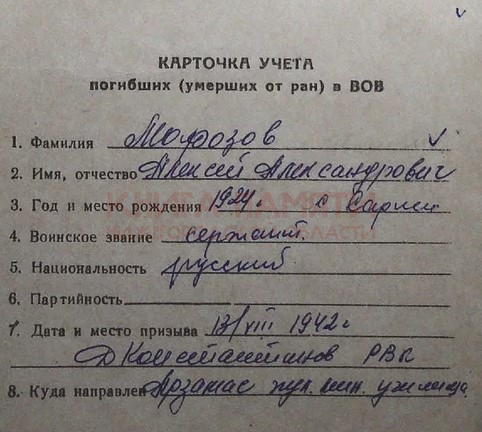 КАРТОЧКА УЧЕТА
погибших (умерших от ран) в ВОВ
1. Фамилия
2. Имя, отчество Алексей Александрович
3. Год и место рождения 1924г. с
4. Воинское звание сержант.
5. Национальность русский
6. Партийность
7. Дата и место призыва 13/VIII 1942г
Д Константинов РВК
8. Куда направлен Арзамас пул. мин. училище
КНИГА ПАМЯТИ
ОБЛАСТИ